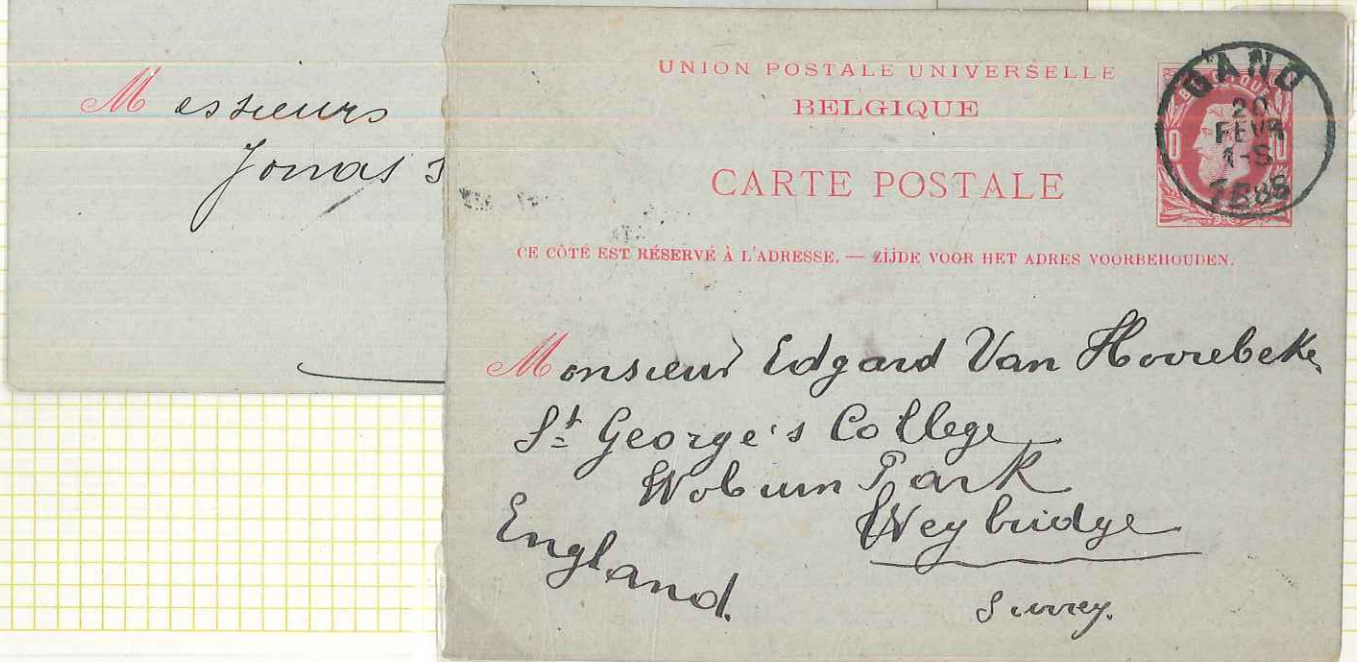 Messieurs
Jonas
UNION POSTALE UNIVERSELLE
BELGIQUE
CARTE POSTALE
CE CÔTÉ EST RÉSERVÉ À L'ADRESSE. — ZIJDE VOOR HET ADRES VOORBEHOUDEN.
BELGIQUE
GAND
20
FEVR
1-S
1885
Monsieur Edgard Van Hoorebeke
St George's College
Woburn Park
Weybridge
England.
Surrey.